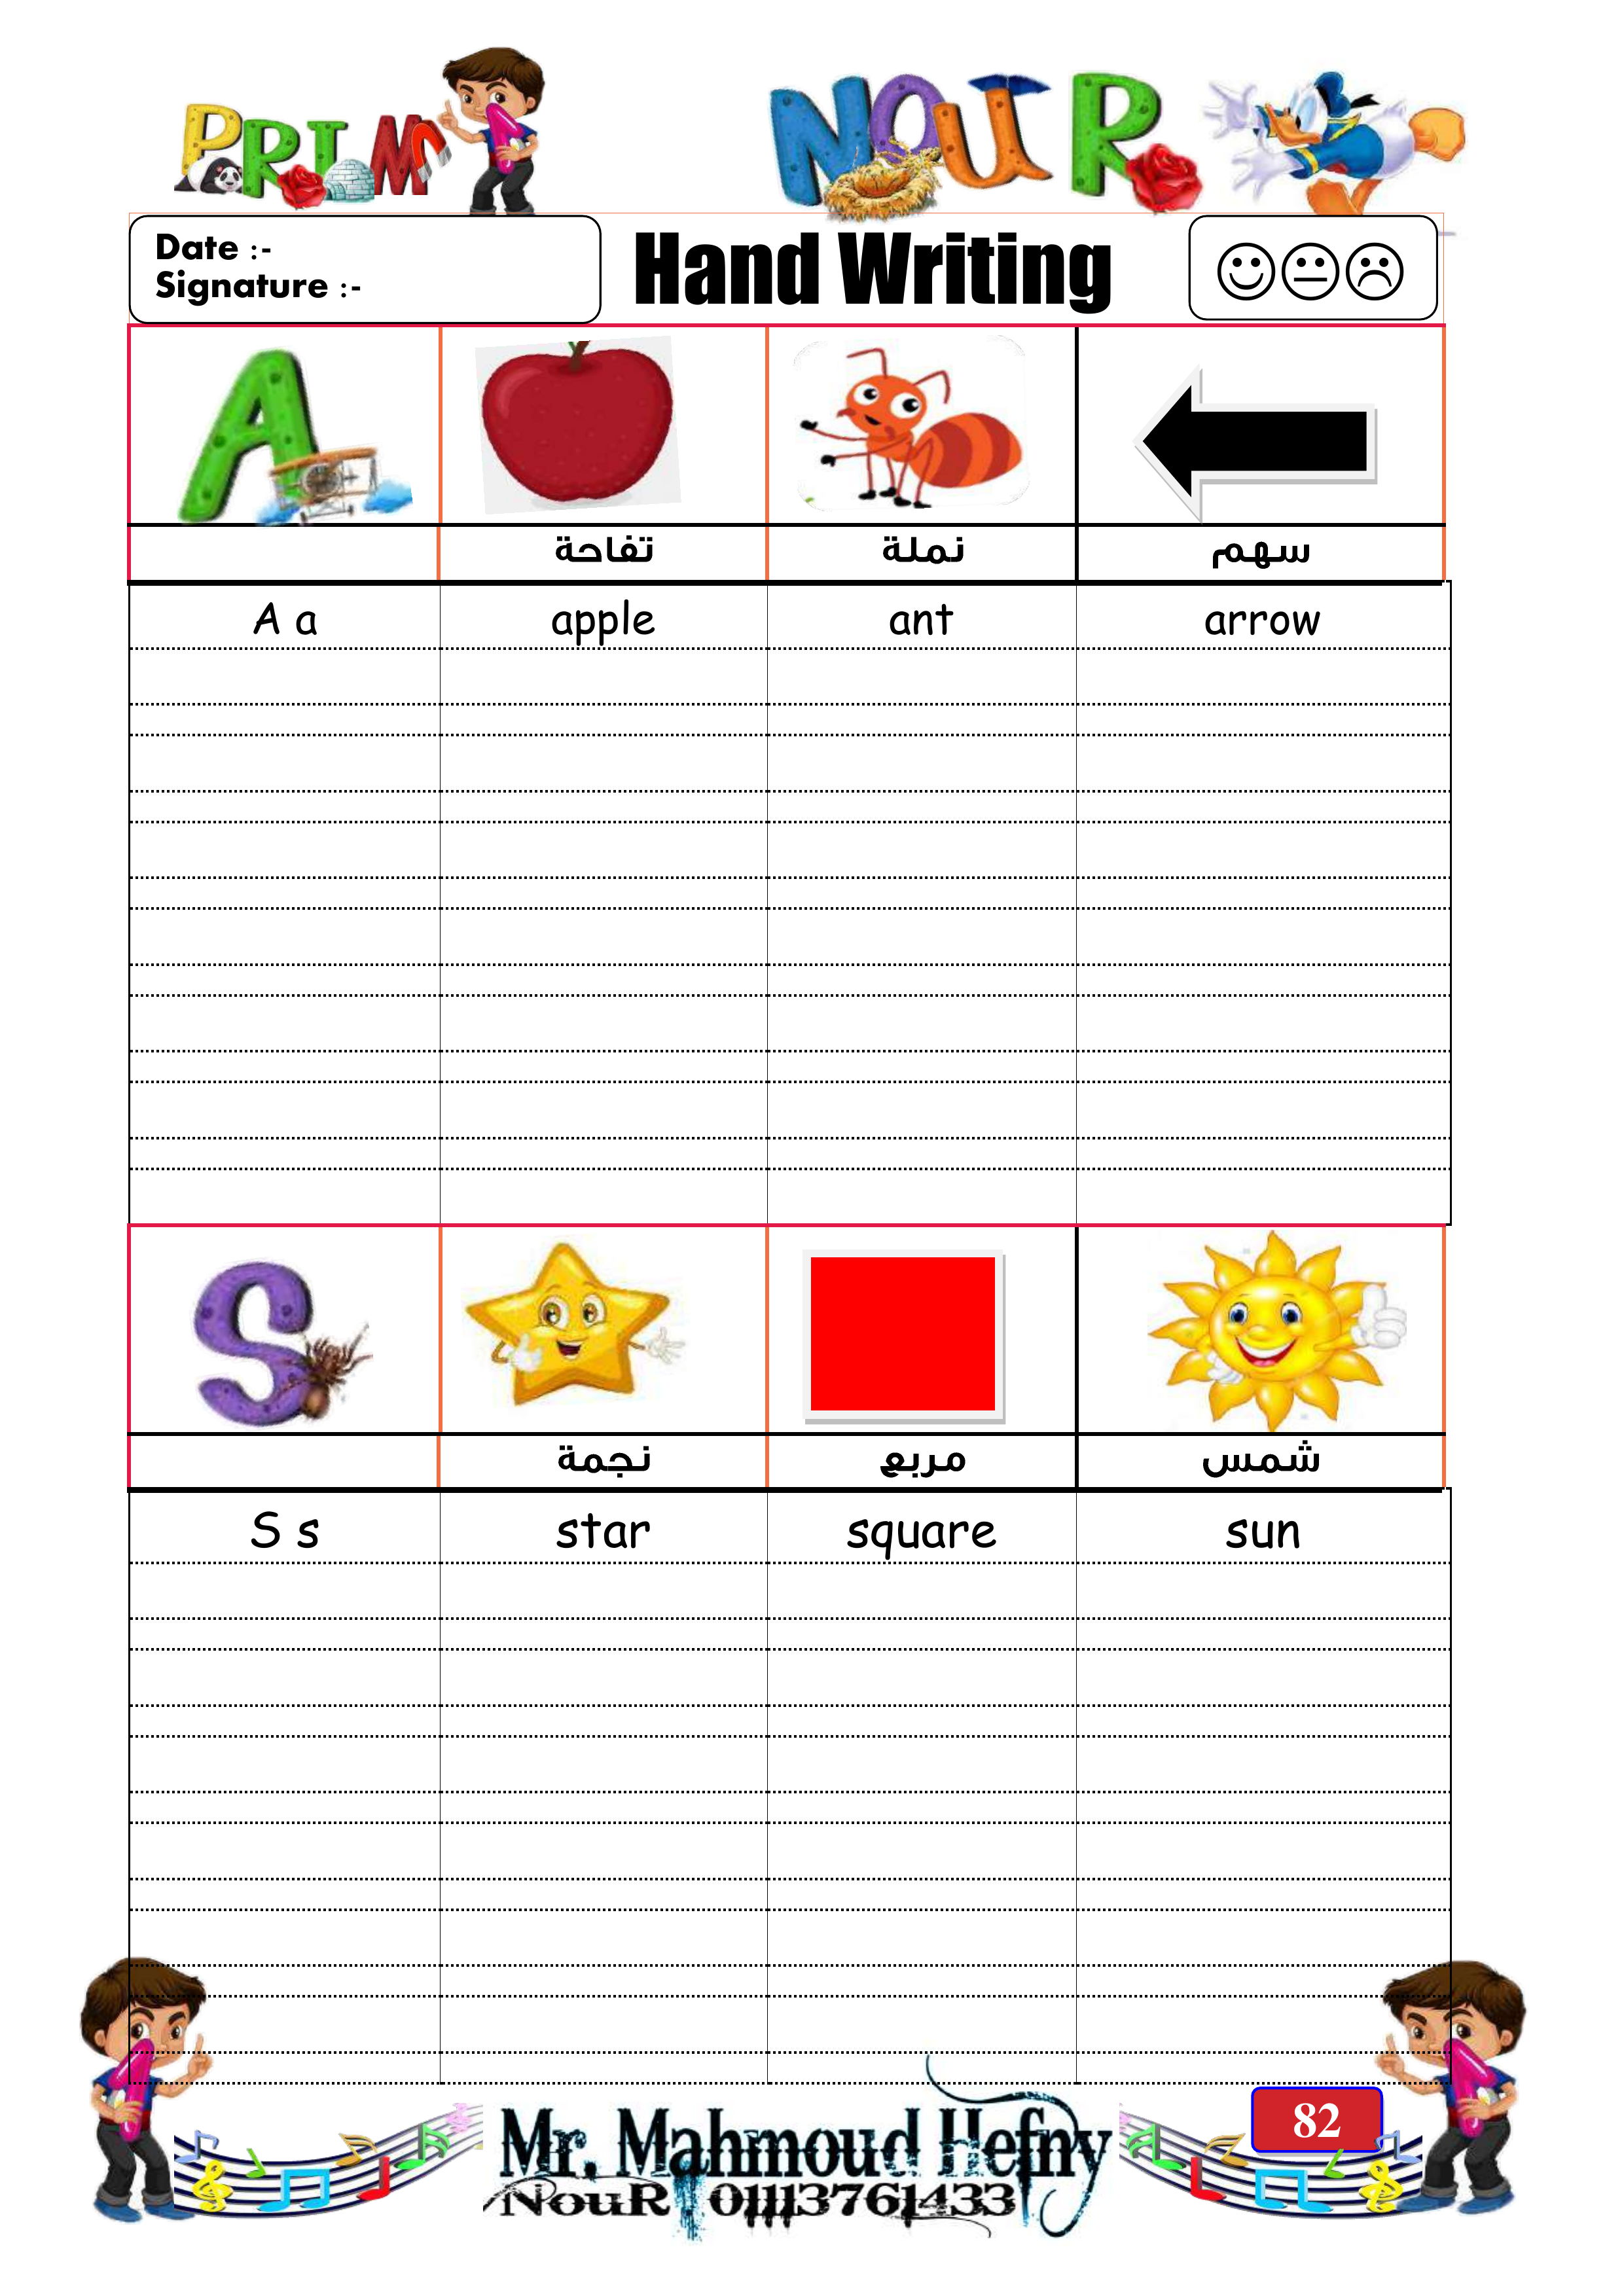 PRIM NOUR
Date :-
Signature :-
Hand Writing
A
تفاحة نملة سهم
A a apple ant arrow
S
نجمة مربع شمس
S s star square sun
82
Mr. Mahmoud Hefny
NouR : 01113761433